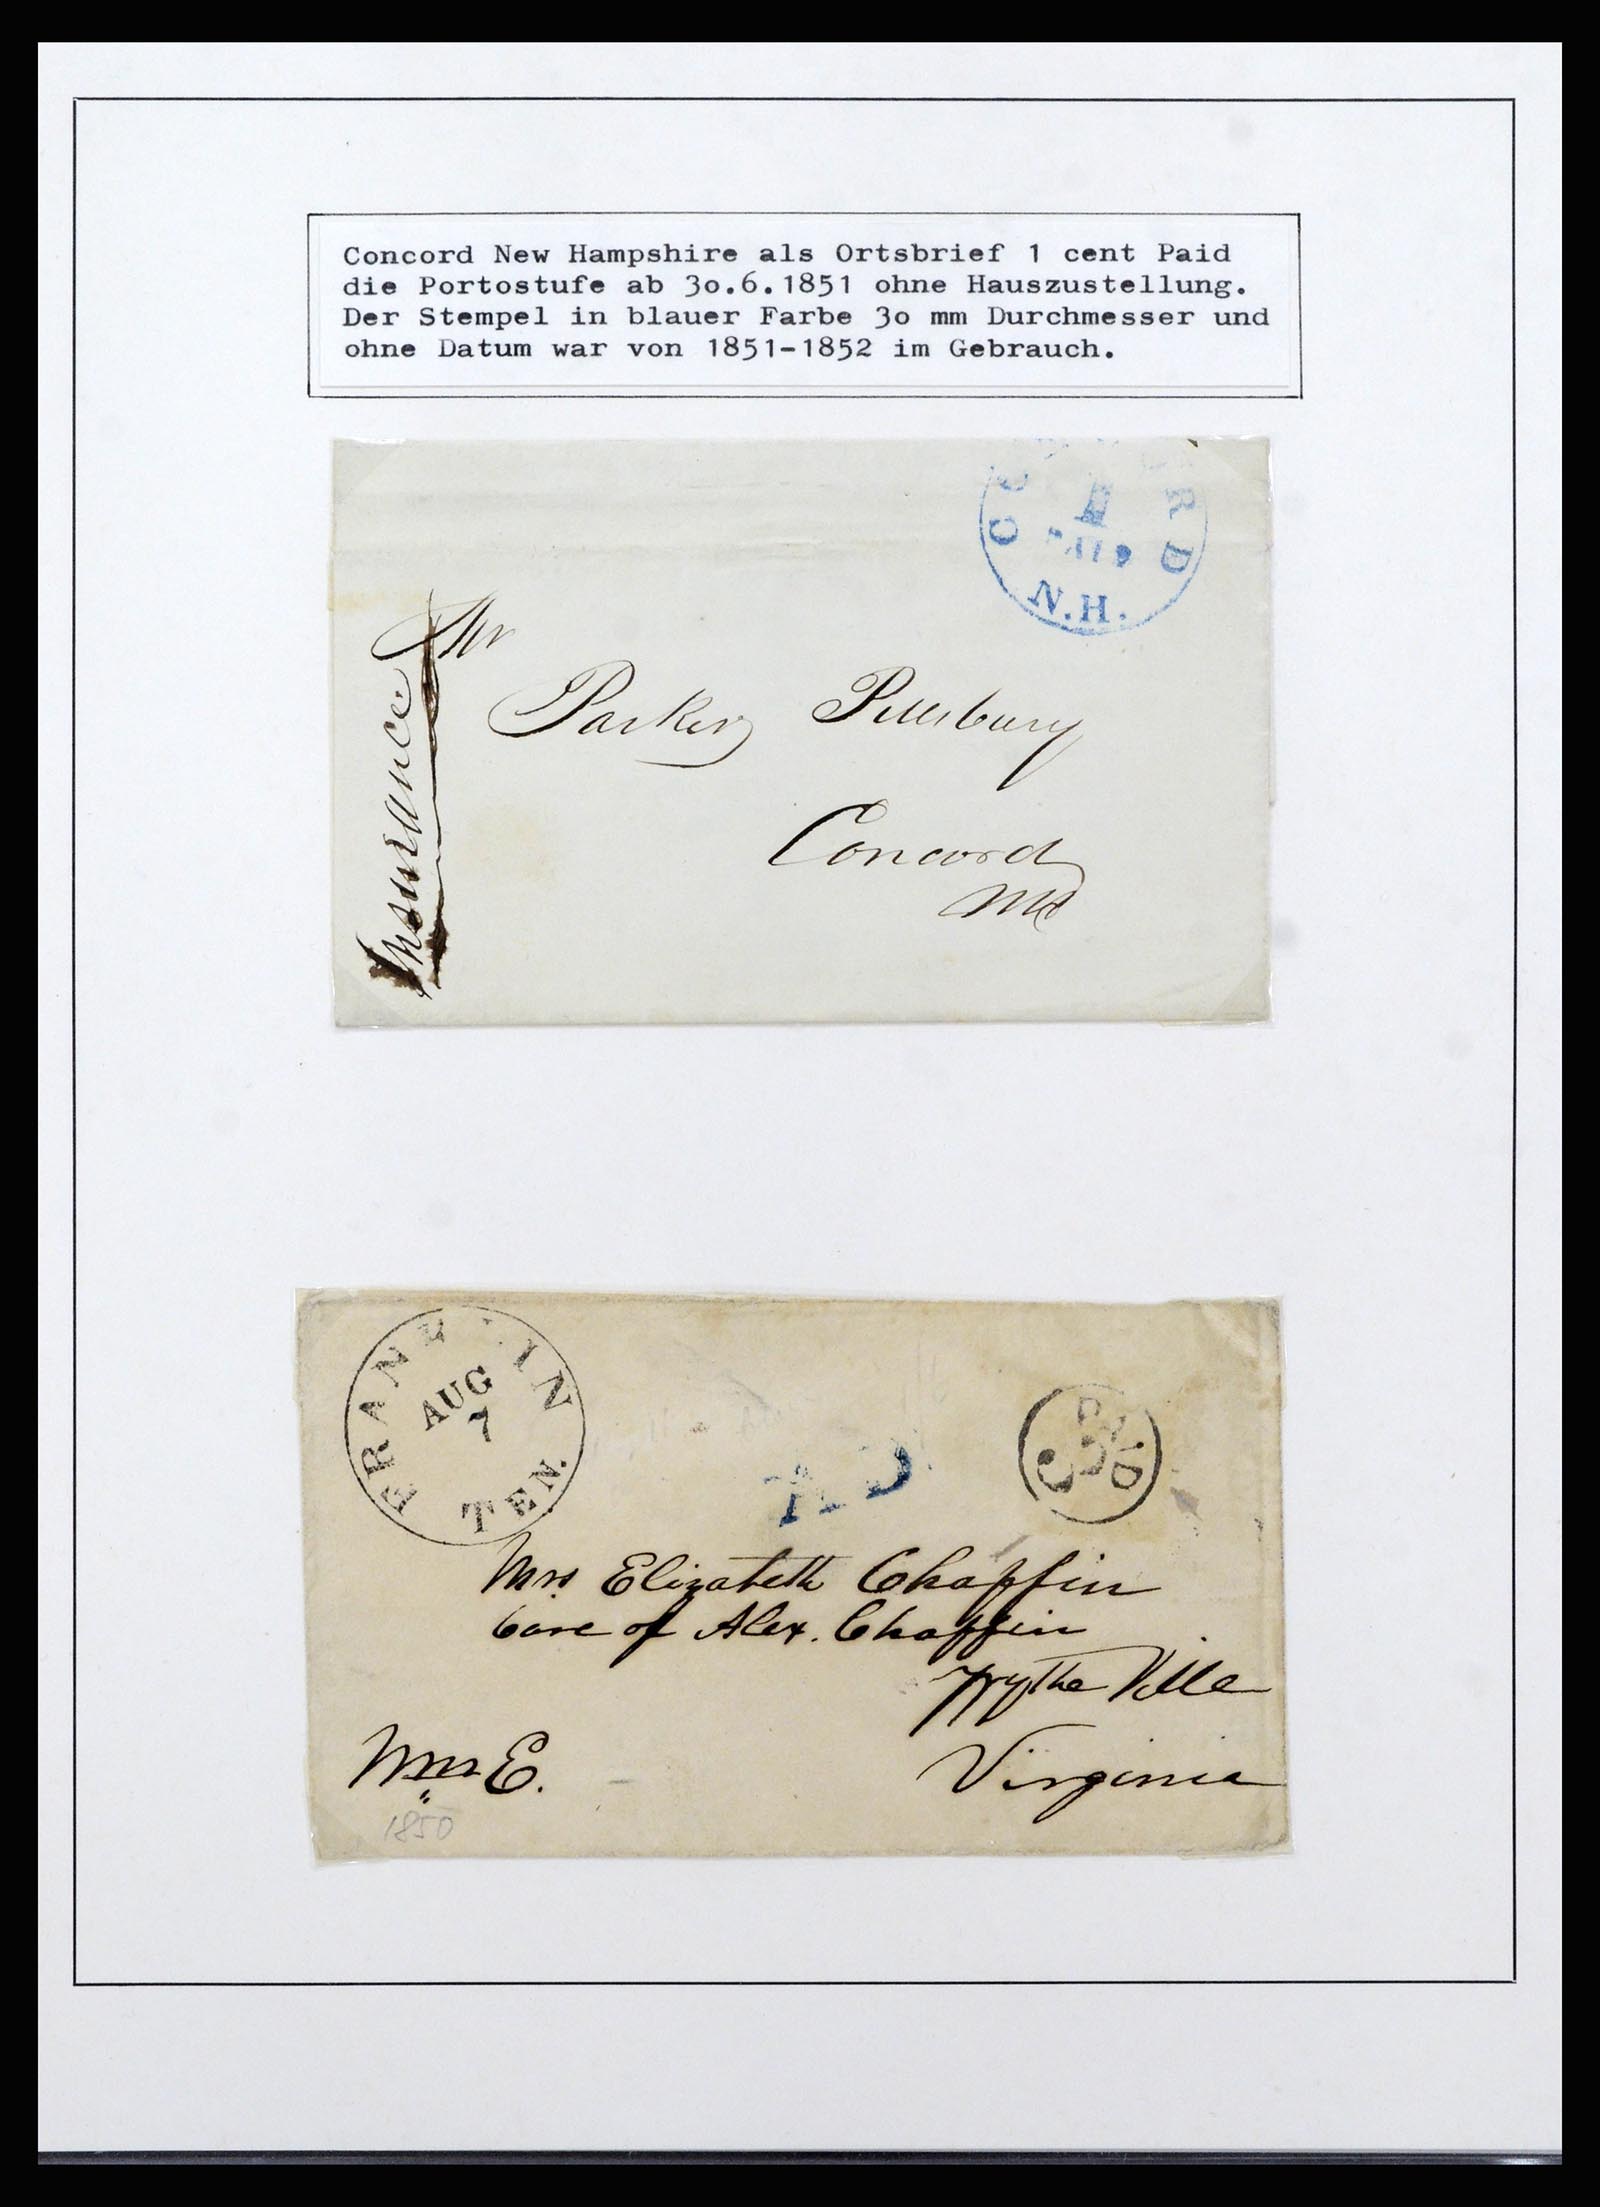 Concord New Hampshire als Ortsbrief 1 cent Paid
die Portostufe ab 3o.6.1851 ohne Hauszustellung.
Der Stempel in blauer Farbe 3o mm Durchmesser und
ohne Datum war von 1851-1852 im Gebrauch.
1
PAID
N.H.
Mr
Parker Pillsbury
Concord
Insurance
FRANKLIN
AUG
7
TEN.
PAID
3
Mrs Elizabeth Chaffin
Care of Alex. Chaffin
Wythe Ville
Virginia
E.
1850